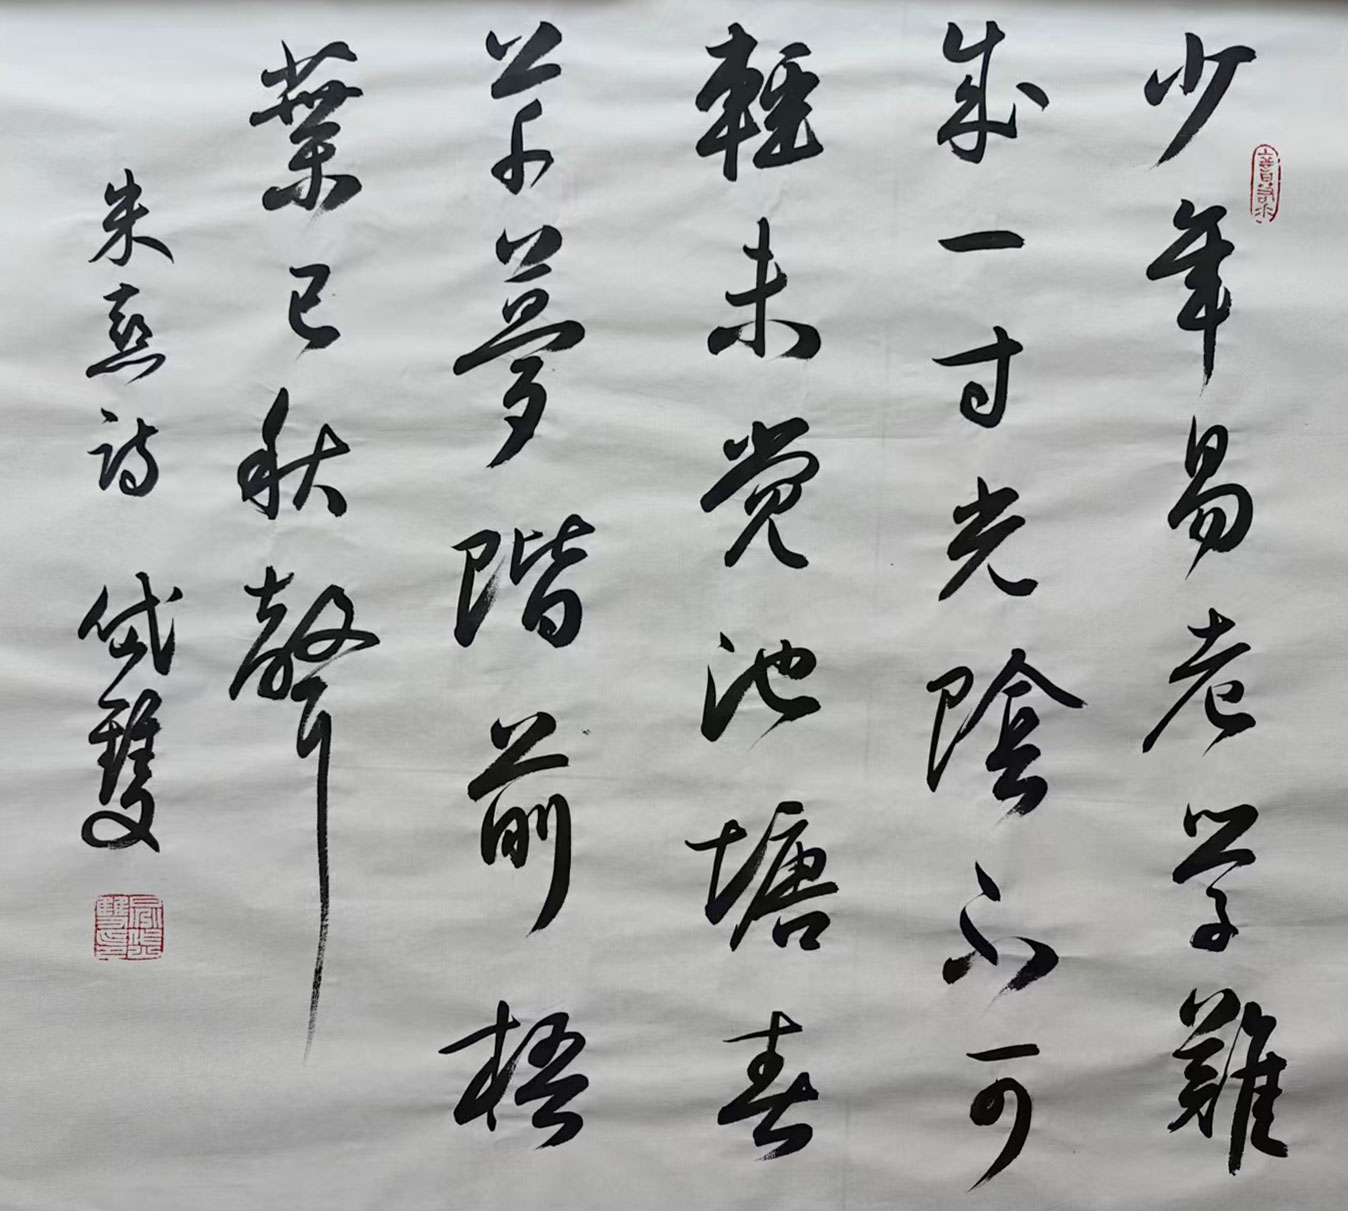 少年易老学難
成一寸光陰不可
輕未觉池塘春
草夢階前梧
葉已秋聲
朱熹詩 岱雙
上善若水